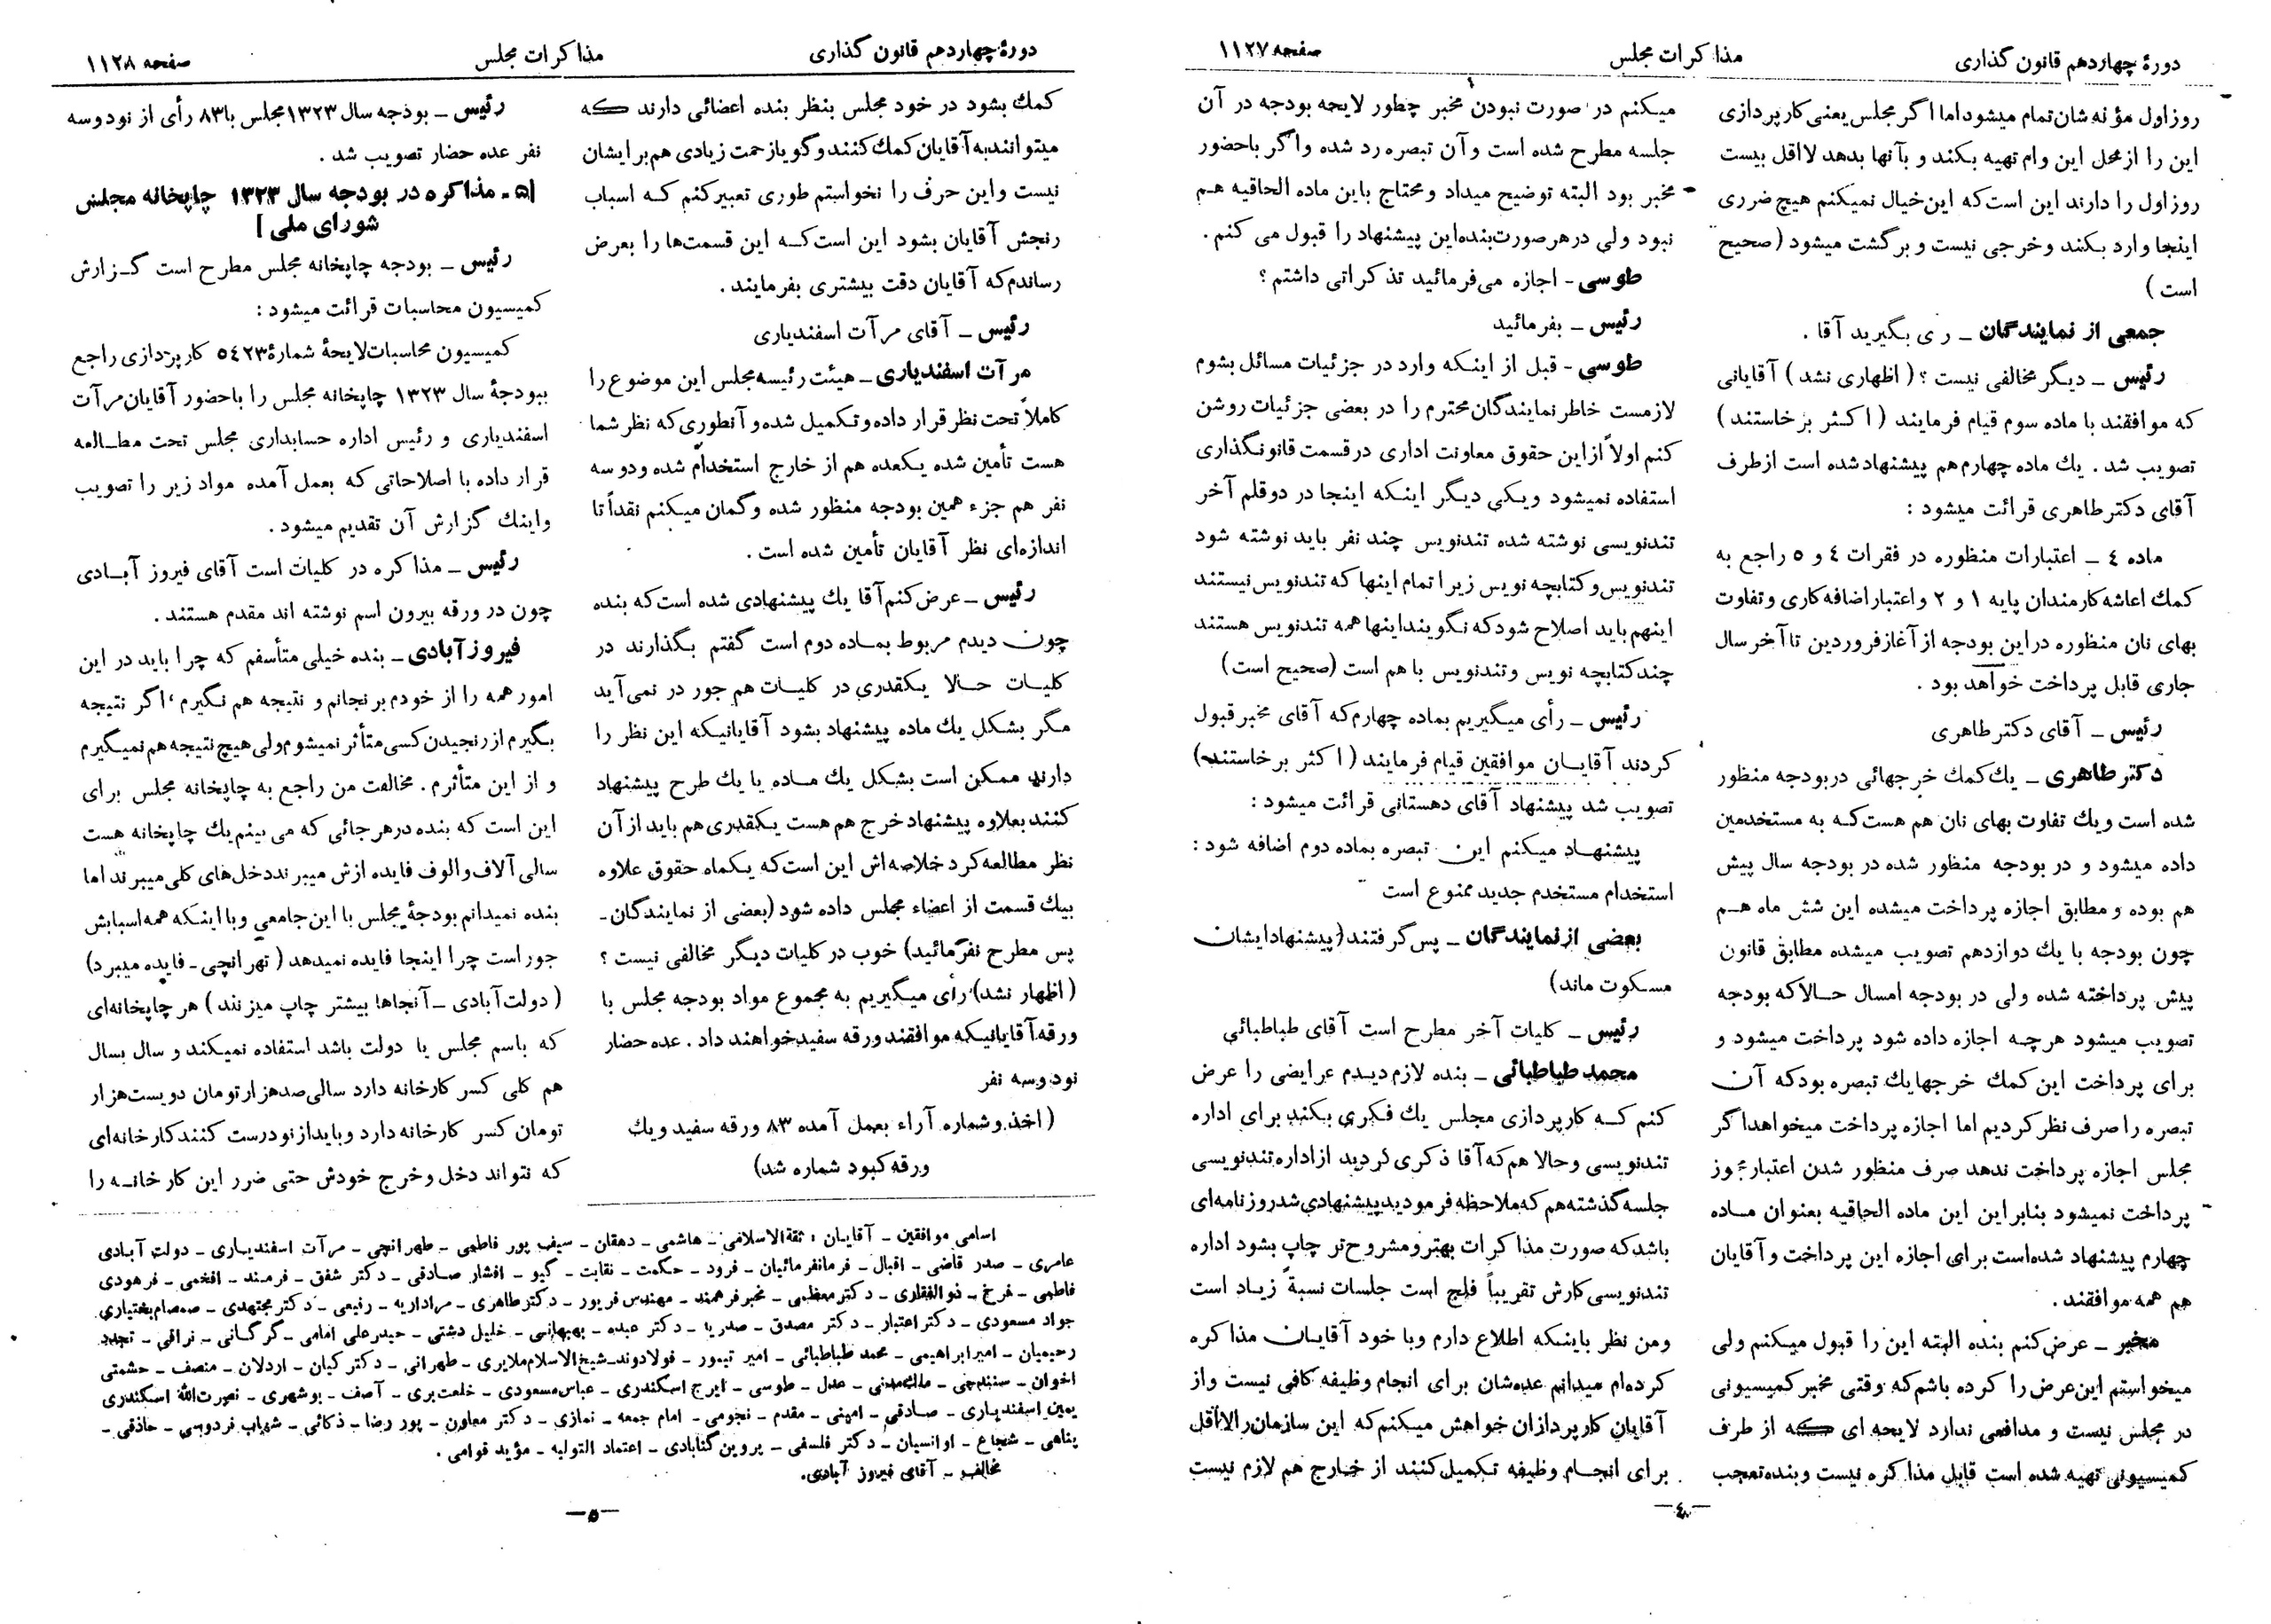 دورهٔ چهاردهم قانون گذاری
مذاکرات مجلس
صفحه ۱۱۲۷
روز اول مؤنه شان تمام میشود اما اگر مجلس یعنی کارپردازی
این را از محل این وام تهیه بکند و بآنها بدهد لااقل بیست
روز اول را دارند این است که این خیال نمیکنم هیچ ضرری
اینجا وارد بکند و خرجی نیست و برگشت میشود (صحیح
است)
جمعی از نمایندگان ــ رأی بگیرید آقا .
رئیس ــ دیگر مخالفی نیست ؟ (اظهاری نشد) آقایانی
که موافقند با ماده سوم قیام فرمایند (اکثر برخاستند)
تصویب شد . یك ماده چهارم هم پیشنهاد شده است از طرف
آقای دکتر طاهری قرائت میشود :
ماده ٤ ــ اعتبارات منظوره در فقرات ٤ و ٥ راجع به
کمك اعاشه کارمندان پایه ۱ و ۲ و اعتبار اضافه کاری و تفاوت
بهای نان منظوره در این بودجه از آغاز فروردین تا آخر سال
جاری قابل پرداخت خواهد بود .
رئیس ــ آقای دکتر طاهری
دکتر طاهری ــ یك کمك خرجهائی در بودجه منظور
شده است و یك تفاوت بهای نان هم هست که به مستخدمین
داده میشود و در بودجه منظور شده در بودجه سال پیش
هم بوده و مطابق اجازه پرداخت میشده این شش ماه هم
چون بودجه با یك دوازدهم تصویب میشده مطابق قانون
پیش پرداخته شده ولی در بودجه امسال حالا که بودجه
تصویب میشود هرچه اجازه داده شود پرداخت میشود و
برای پرداخت این کمك خرجها یك تبصره بود که آن
تبصره را صرف نظر کردیم اما اجازه پرداخت میخواهد اگر
مجلس اجازه پرداخت ندهد صرف منظور شدن اعتبار مجوز
پرداخت نمیشود بنابراین این ماده الحاقیه بعنوان ماده
چهارم پیشنهاد شده است برای اجازه این پرداخت و آقایان
هم همه موافقند .
مخبر ــ عرض کنم بنده البته این را قبول میکنم ولی
میخواستم این عرض را کرده باشم که وقتی مخبر کمیسیونی
در مجلس نیست و مدافعی ندارد لایحه ای که از طرف
کمیسیونی تهیه شده است قابل مذاکره نیست و بنده تعجب
میکنم در صورت نبودن مخبر چطور لایحه بودجه در آن
جلسه مطرح شده است و آن تبصره رد شده و اگر با حضور
مخبر بود البته توضیح میداد و محتاج باین ماده الحاقیه هم
نبود ولی در هر صورت بنده این پیشنهاد را قبول می کنم .
طوسی ـ اجازه می فرمائید تذکراتی داشتم ؟
رئیس ــ بفرمائید
طوسی ـ قبل از اینکه وارد در جزئیات مسائل بشوم
لازمست خاطر نمایندگان محترم را در بعضی جزئیات روشن
کنم اولاً از این حقوق معاونت اداری در قسمت قانونگذاری
استفاده نمیشود و یکی دیگر اینکه اینجا در دو قلم آخر
تندنویسی نوشته شده تندنویس چند نفر باید نوشته شود
تندنویس و کتابچه نویس زیرا تمام اینها که تندنویس نیستند
اینهم باید اصلاح شود که نگویند اینها همه تندنویس هستند
چند کتابچه نویس و تندنویس با هم است (صحیح است)
رئیس ــ رأی میگیریم بماده چهارم که آقای مخبر قبول
کردند آقایان موافقین قیام فرمایند (اکثر برخاستند)
تصویب شد پیشنهاد آقای دهستانی قرائت میشود :
پیشنهاد میکنم این تبصره بماده دوم اضافه شود :
استخدام مستخدم جدید ممنوع است
بعضی از نمایندگان ــ پس گرفتند (پیشنهاد ایشان
مسکوت ماند)
رئیس ــ کلیات آخر مطرح است آقای طباطبائی
محمد طباطبائی ــ بنده لازم دیدم عرایضی را عرض
کنم که کارپردازی مجلس یك فکری بکند برای اداره
تندنویسی و حالا هم که آقا ذکری کردید از اداره تندنویسی
جلسه گذشته هم که ملاحظه فرمودید پیشنهادی شد روزنامه ای
باشد که صورت مذاکرات بهتر و مشروح تر چاپ بشود اداره
تندنویسی کارش تقریباً فلج است جلسات نسبةً زیاد است
و من نظر باینکه اطلاع دارم و با خود آقایان مذاکره
کرده ام میدانم عده شان برای انجام وظیفه کافی نیست و از
آقایان کارپردازان خواهش میکنم که این سازمان را لااقل
برای انجام وظیفه تکمیل کنند از خارج هم لازم نیست
ـ٤ـ
دورهٔ چهاردهم قانون گذاری
مذاکرات مجلس
صفحه ۱۱۲۸
کمك بشود در خود مجلس بنظر بنده اعضائی دارند که
میتوانند به آقایان کمك کنند و گویا زحمت زیادی هم برایشان
نیست و این حرف را نخواستم طوری تعبیر کنم که اسباب
رنجش آقایان بشود این است که این قسمت ها را بعرض
رساندم که آقایان دقت بیشتری بفرمایند .
رئیس ــ آقای مرآت اسفندیاری
مرآت اسفندیاری ــ هیئت رئیسه مجلس این موضوع را
کاملاً تحت نظر قرار داده و تکمیل شده و آنطوری که نظر شما
هست تأمین شده یکعده هم از خارج استخدام شده و دو سه
نفر هم جزء همین بودجه منظور شده و گمان میکنم نقداً تا
اندازه ای نظر آقایان تأمین شده است .
رئیس ــ عرض کنم آقا یك پیشنهادی شده است که بنده
چون دیدم مربوط بماده دوم است گفتم بگذارند در
کلیات حالا یکقدری در کلیات هم جور در نمی آید
مگر بشکل یك ماده پیشنهاد بشود آقایانیکه این نظر را
دارند ممکن است بشکل یك ماده یا یك طرح پیشنهاد
کنند بعلاوه پیشنهاد خرج هم هست یکقدری هم باید از آن
نظر مطالعه کرد خلاصه اش این است که یکماه حقوق علاوه
بیك قسمت از اعضاء مجلس داده شود (بعضی از نمایندگان ـ
پس مطرح نفرمائید) خوب در کلیات دیگر مخالفی نیست ؟
(اظهار نشد) رأی میگیریم به مجموع مواد بودجه مجلس با
ورقه آقایانیکه موافقند ورقه سفید خواهند داد . عده حضار
نود و سه نفر
(اخذ و شماره آراء بعمل آمده ۸۳ ورقه سفید و یك
ورقه کبود شماره شد)
رئیس ــ بودجه سال ۱۳۲۳ مجلس با ۸۳ رأی از نود و سه
نفر عده حضار تصویب شد .
[٥ ـ مذاکره در بودجه سال ۱۳۲۳ چاپخانه مجلس
شورای ملی]
رئیس ــ بودجه چاپخانه مجلس مطرح است گزارش
کمیسیون محاسبات قرائت میشود :
کمیسیون محاسبات لایحهٔ شمارهٔ ٥٤٢٣ کارپردازی راجع
ببودجهٔ سال ۱۳۲۳ چاپخانه مجلس را با حضور آقایان مرآت
اسفندیاری و رئیس اداره حسابداری مجلس تحت مطالعه
قرار داده با اصلاحاتی که بعمل آمده مواد زیر را تصویب
و اینك گزارش آن تقدیم میشود .
رئیس ــ مذاکره در کلیات است آقای فیروز آبادی
چون در ورقه بیرون اسم نوشته اند مقدم هستند .
فیروزآبادی ــ بنده خیلی متأسفم که چرا باید در این
امور همه را از خودم برنجانم و نتیجه هم نگیرم ، اگر نتیجه
بگیرم از رنجیدن کسی متأثر نمیشوم ولی هیچ نتیجه هم نمیگیرم
و از این متأثرم . مخالفت من راجع به چاپخانه مجلس برای
این است که بنده در هر جائی که می بینم یك چاپخانه هست
سالی آلاف و الوف فایده ازش میبرند دخل های کلی میبرند اما
بنده نمیدانم بودجهٔ مجلس با این جامعی و با اینکه همه اسبابش
جور است چرا اینجا فایده نمیدهد (تهرانچی ـ فایده میبرد)
(دولت آبادی ــ آنجاها بیشتر چاپ میزنند) هر چاپخانه ای
که باسم مجلس یا دولت باشد استفاده نمیکند و سال بسال
هم کلی کسر کارخانه دارد سالی صد هزار تومان دویست هزار
تومان کسر کارخانه دارد و باید از نو درست کنند کارخانه ای
که نتواند دخل و خرج خودش حتی ضرر این کارخانه را
اسامی موافقین ــ آقایان : ثقة الاسلامی ـ هاشمی ـ دهقان ـ سیف پور فاطمی ـ طهرانچی ـ مرآت اسفندیاری ـ دولت آبادی
عامری ـ صدر قاضی ـ اقبال ـ فرمانفرمائیان ـ فرود ـ حکمت ـ نقابت ـ گیو ـ افشار صادقی ـ دکتر شفق ـ فرمند ـ افخمی ـ فرهودی
فاطمی ـ فرخ ـ ذوالفقاری ـ دکتر معظمی ـ مخبر فرهمند ـ مهندس فریور ـ دکتر طاهری ـ مراداریه ـ رفیعی ـ دکتر مجتهدی ـ صمصام بختیاری
جواد مسعودی ـ دکتر اعتبار ـ دکتر مصدق ـ صدریا ـ دکتر عبده ـ بهبهانی ـ خلیل دشتی ـ حیدر علی امامی ـ گرگانی ـ نراقی ـ تجدد
رحیمیان ـ امیر ابراهیمی ـ محمد طباطبائی ـ امیر تیمور ـ فولادوند ـ شیخ الاسلام ملایری ـ طهرانی ـ دکتر کیان ـ اردلان ـ منصف ـ حشمتی
اخوان ـ سنندجی ـ ملك مدنی ـ عدل ـ طوسی ـ ایرج اسکندری ـ عباس مسعودی ـ خلعت بری ـ آصف ـ بوشهری ـ نصرت الله اسکندری
یمین اسفندیاری ـ صادقی ـ امینی ـ مقدم ـ نجومی ـ امام جمعه ـ نمازی ـ دکتر معاون ـ پور رضا ـ ذکائی ـ شهاب فردوسی ـ حاذقی ـ
پناهی ـ شجاع ـ اوانسیان ـ دکتر فلسفی ـ پروین گنابادی ـ اعتماد التولیه ـ مؤید قوامی .
مخالف ــ آقای فیروز آبادی.
ـ٥ـ